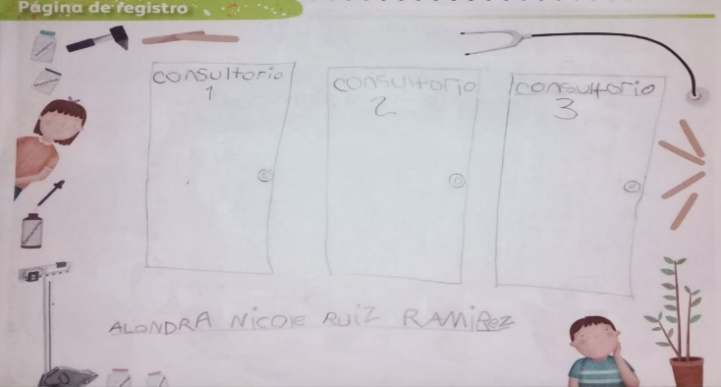 Página de registro
consultorio consultorio consultorio
1 2 3
ALONDRA NicOle RUiZ RAMiRez